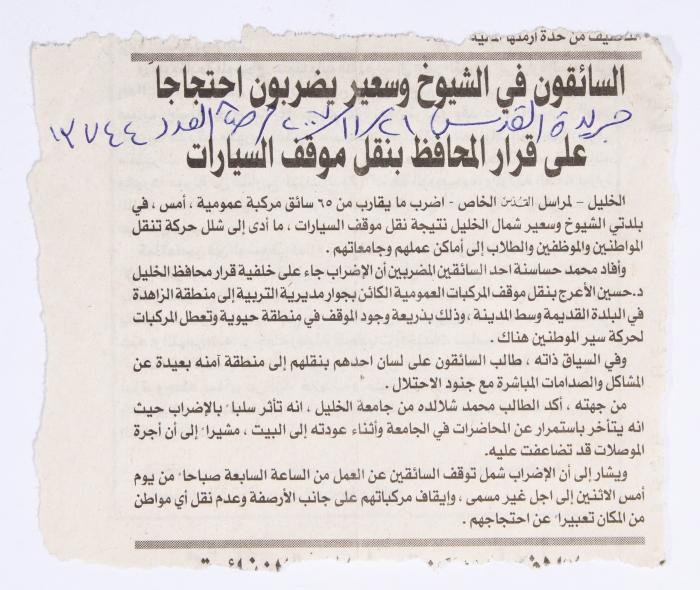 السائقون في الشيوخ وسعير يضربون احتجاجاً
جريدة القدس ٢١/١١/ العدد ١٣٧٤٤
على قرار المحافظ بنقل موقف السيارات
الخليل - لمراسل القدس الخاص - اضرب ما يقارب من ٦٥ سائق مركبة عمومية ، أمس ، في
بلدتي الشيوخ وسعير شمال الخليل نتيجة نقل موقف السيارات ، ما أدى إلى شلل حركة تنقل
المواطنين والموظفين والطلاب إلى أماكن عملهم وجامعاتهم .
وأفاد محمد حساسنة احد السائقين المضربين أن الإضراب جاء على خلفية قرار محافظ الخليل
د.حسين الأعرج بنقل موقف المركبات العمومية الكائن بجوار مديرية التربية إلى منطقة الزاهدة
في البلدة القديمة وسط المدينة ، وذلك بذريعة وجود الموقف في منطقة حيوية وتعطل المركبات
لحركة سير الموطنين هناك .
وفي السياق ذاته ، طالب السائقون على لسان احدهم بنقلهم إلى منطقة آمنه بعيدة عن
المشاكل والصدامات المباشرة مع جنود الاحتلال .
من جهته ، أكد الطالب محمد شلالده من جامعة الخليل ، انه تأثر سلباً بالإضراب حيث
انه يتأخر باستمرار عن المحاضرات في الجامعة وأثناء عودته إلى البيت ، مشيراً إلى أن أجرة
الموصلات قد تضاعفت عليه.
ويشار إلى أن الإضراب شمل توقف السائقين عن العمل من الساعة السابعة صباحاً من يوم
أمس الاثنين إلى اجل غير مسمى ، وإيقاف مركباتهم على جانب الأرصفة وعدم نقل أي مواطن
من المكان تعبيراً عن احتجاجهم .